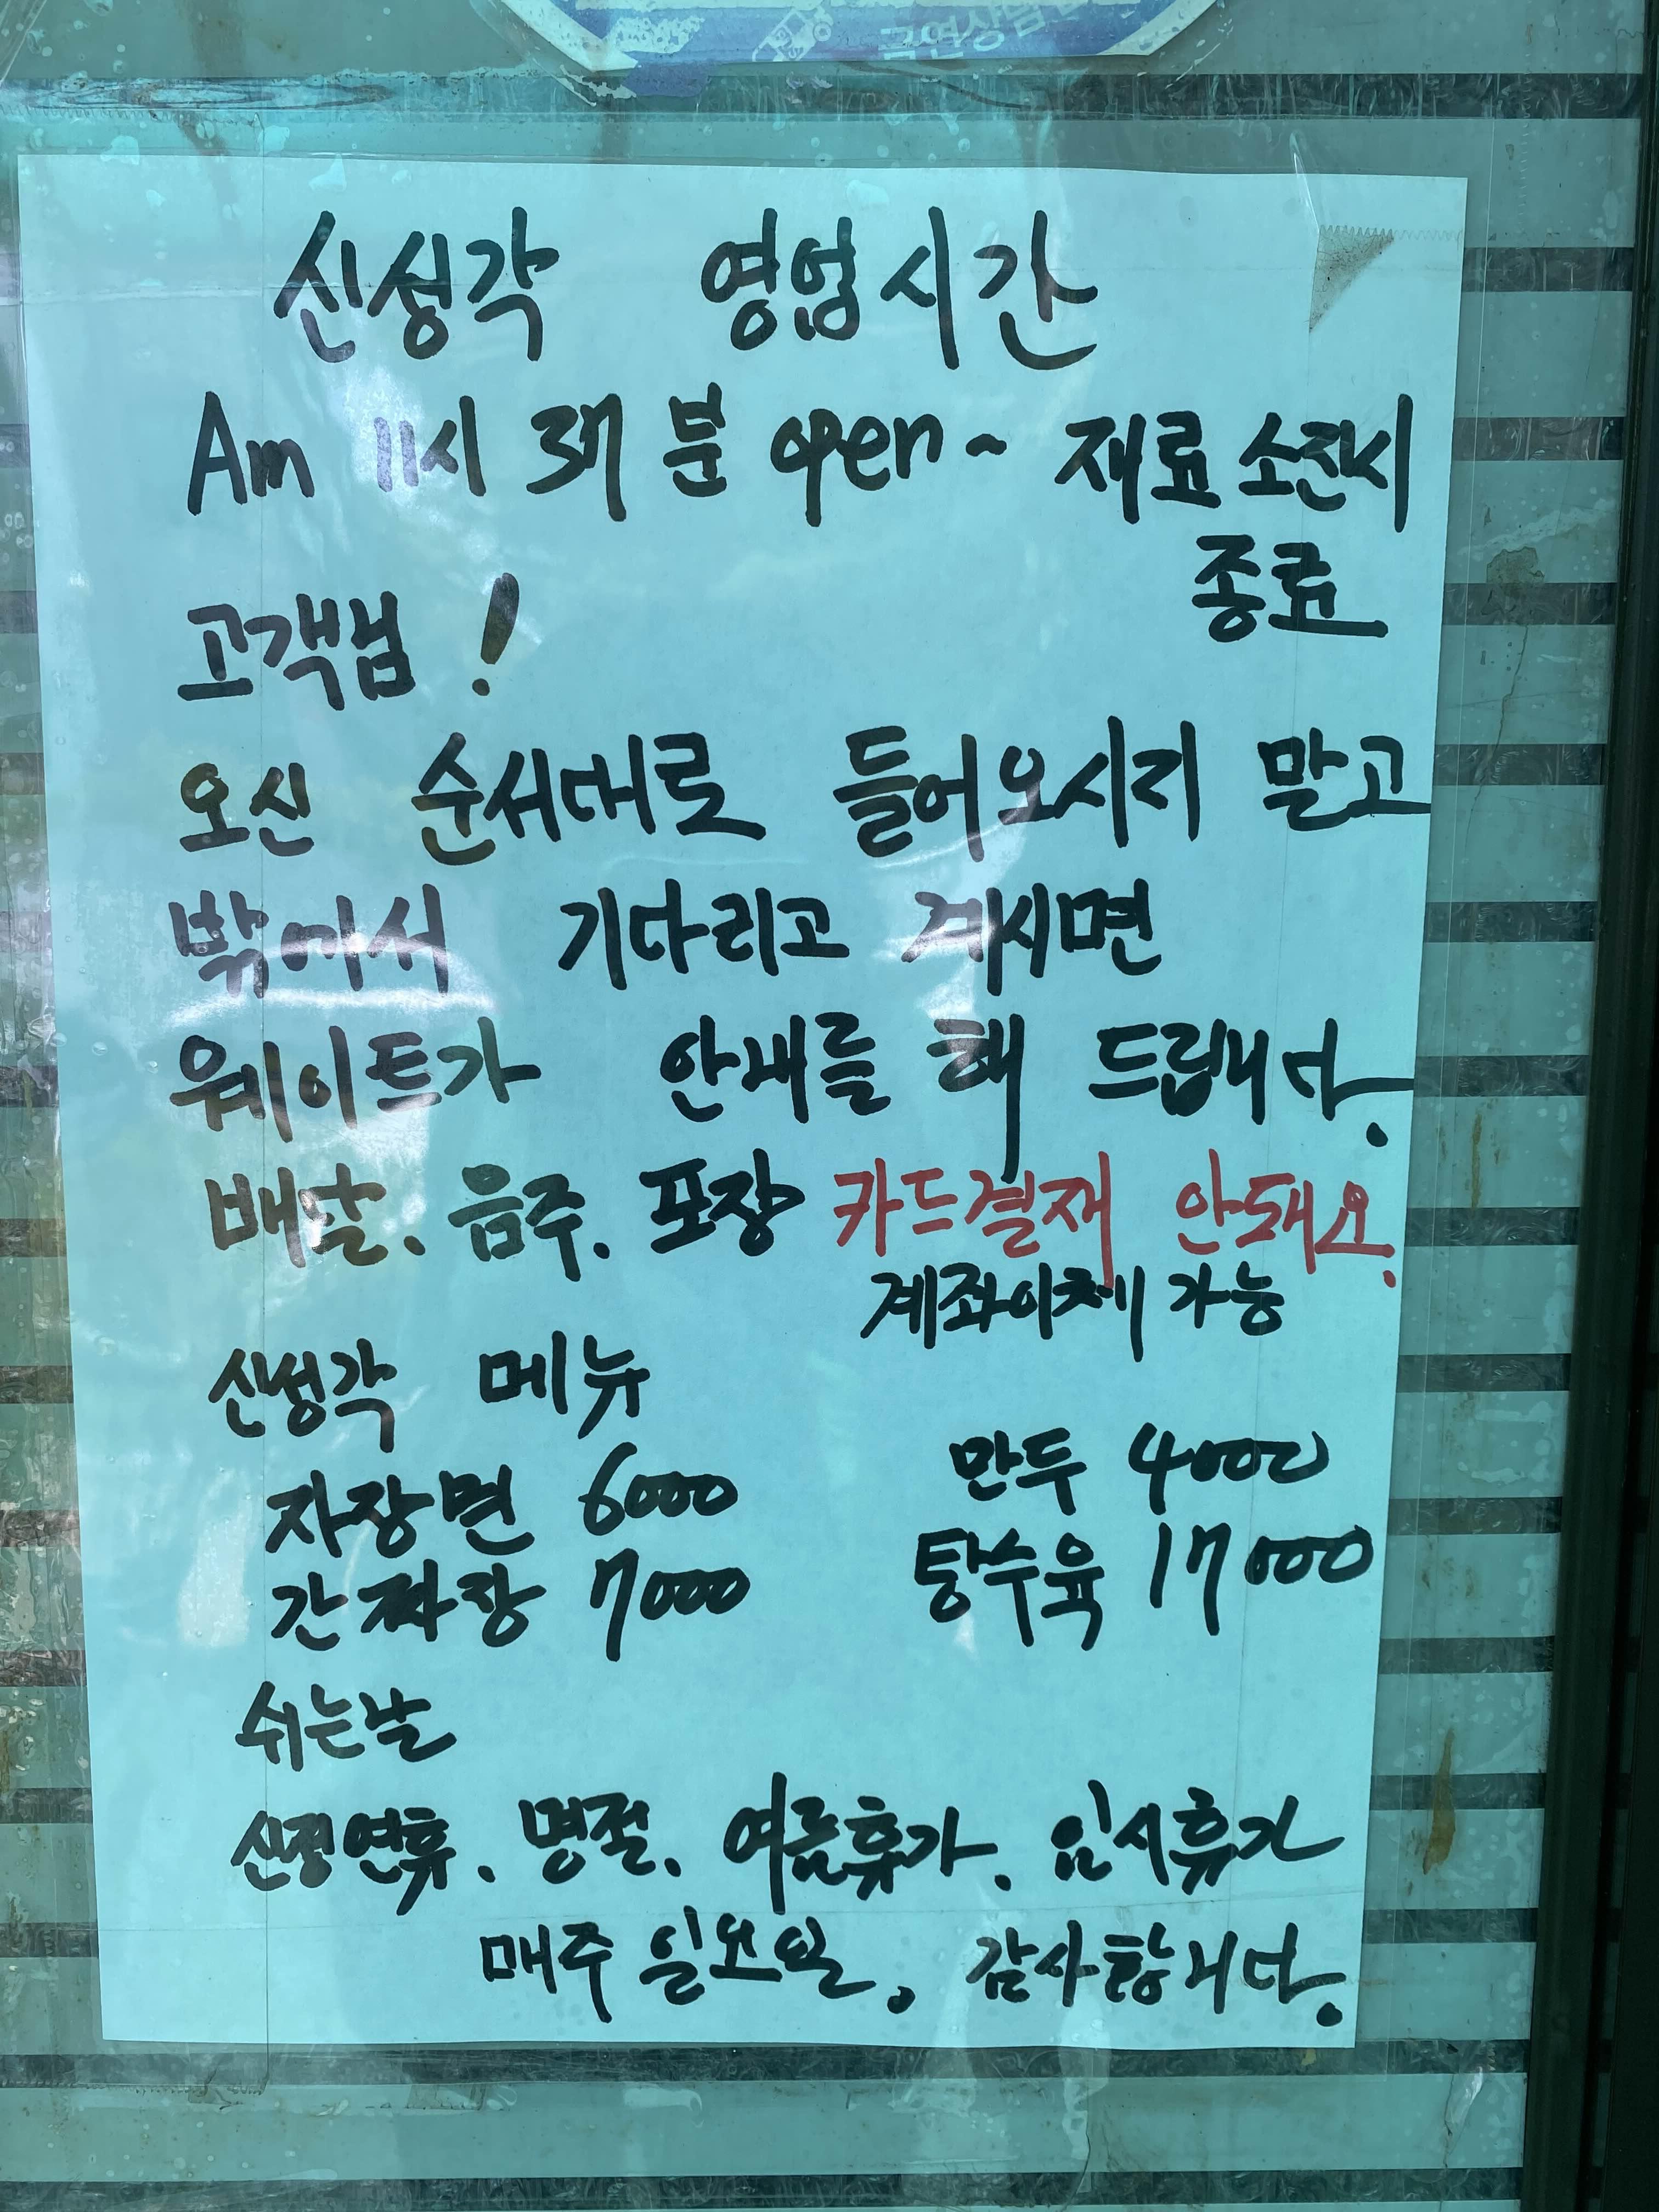 금연상담
신성각 영업시간
Am 11시 37분 open~ 재료소진시
종료
고객님!
오신 순서대로 들어오시지 말고
밖에서 기다리고 계시면
웨이트가 안내를 해 드립니다.
배달. 음주. 포장 카드결재 안돼요.
계좌이체 가능
신성각 메뉴
자장면 6000 만두 4000
간짜장 7000 탕수육 17000
쉬는날
신정연휴. 명절. 여름휴가. 임시휴가
매주 일요일. 감사합니다.